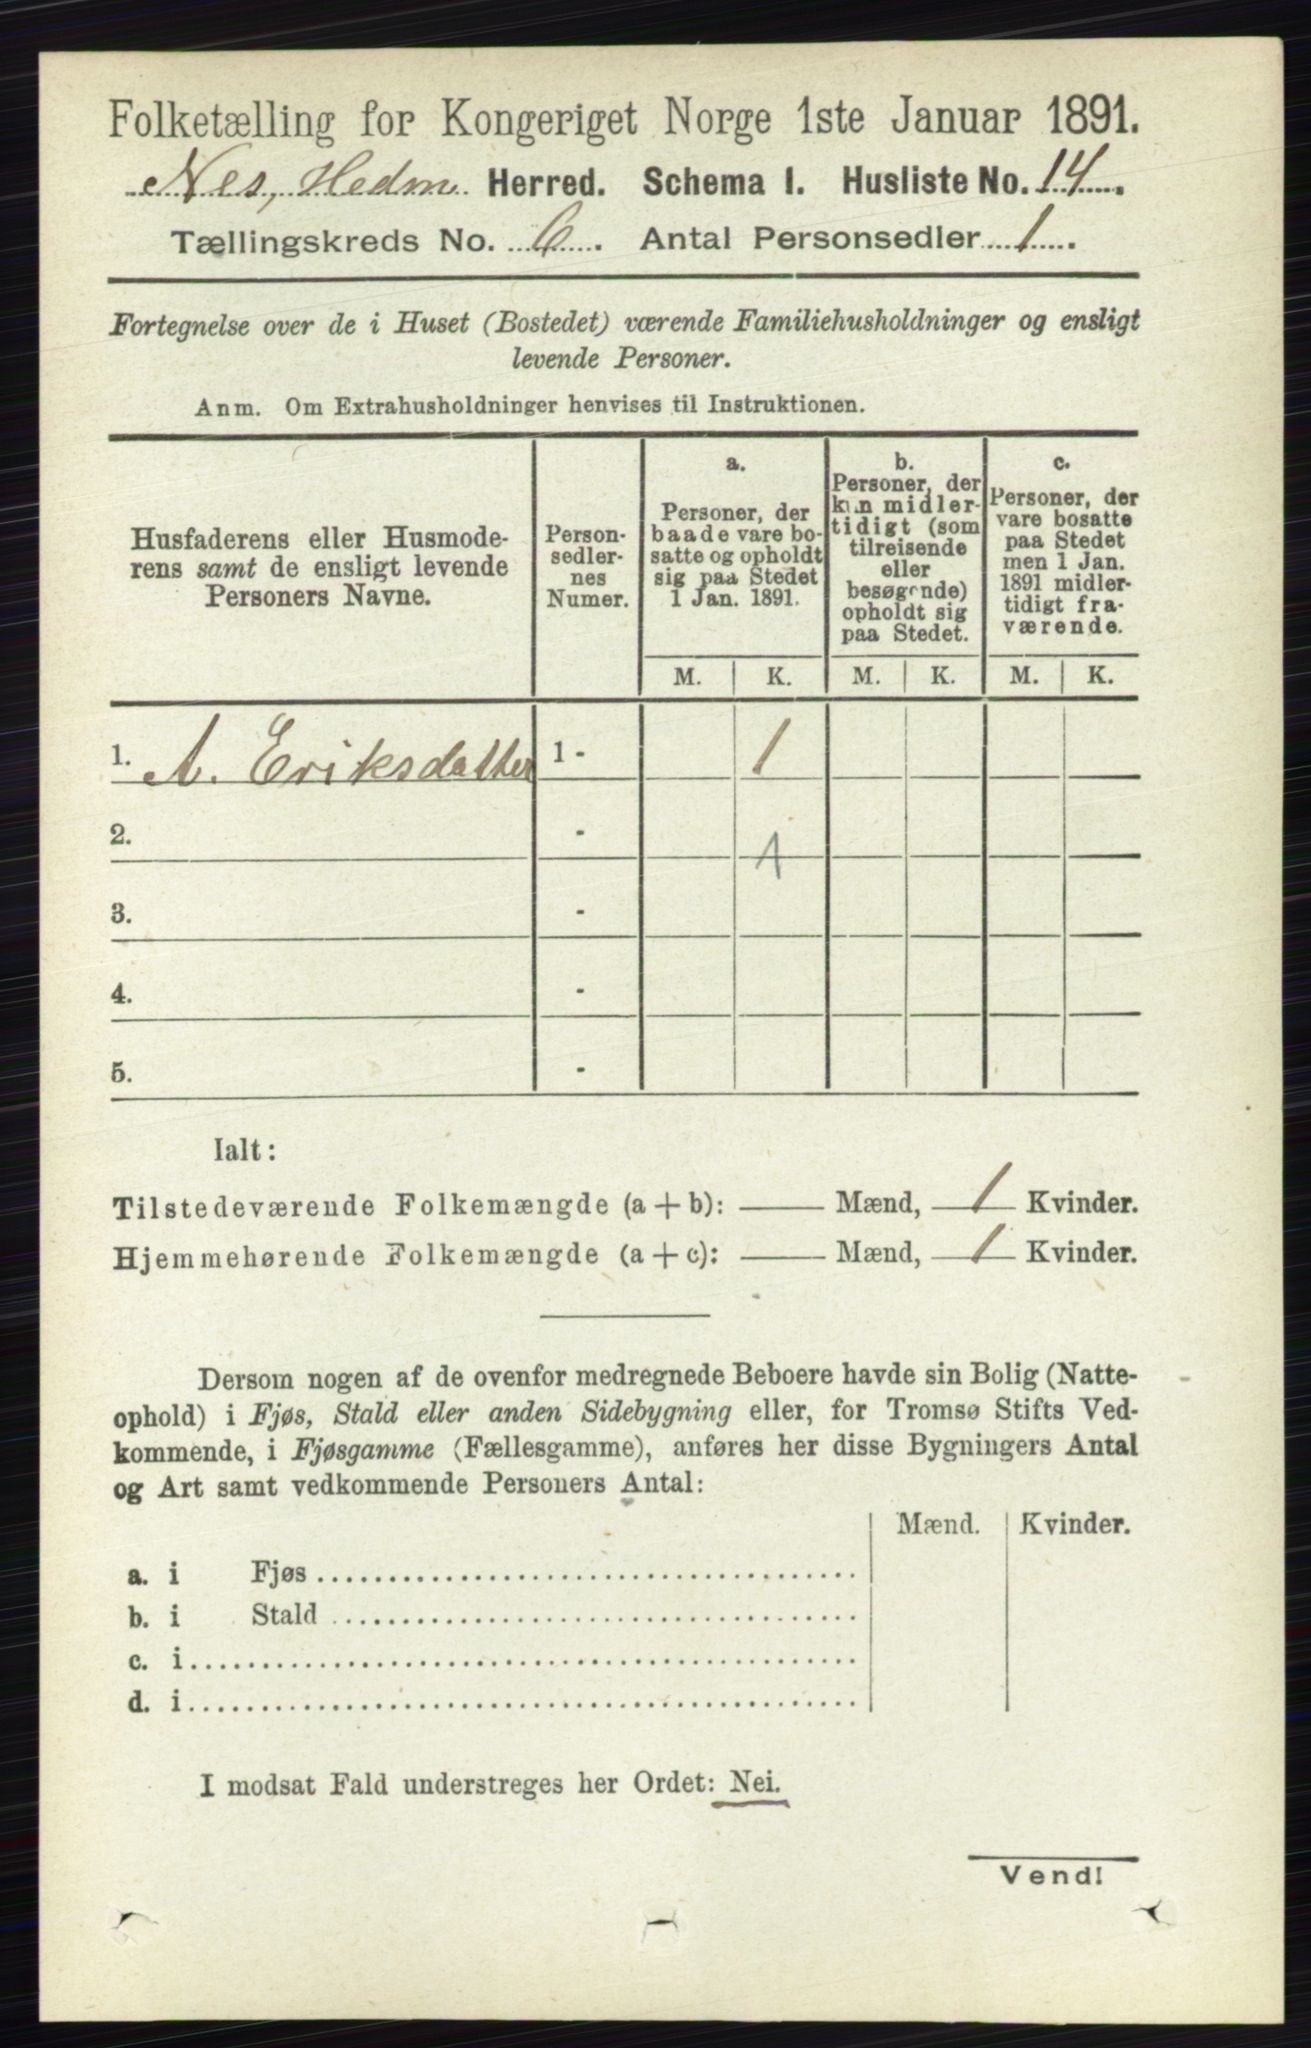 Folketælling for Kongeriget Norge 1ste Januar 1891.
Nes, Hedm Herred. Schema I. Husliste No. 14.
Tællingskreds No. 6. Antal Personsedler 1.
Fortegnelse over de i Huset (Bostedet) værende Familiehusholdninger og ensligt
levende Personer.
Anm. Om Extrahusholdninger henvises til Instruktionen.
Husfaderens eller Husmode-
rens samt de ensligt levende
Personers Navne.
Person-
sedler-
nes
Numer.
a.
Personer, der
baade vare bo-
satte og opholdt
sig paa Stedet
1 Jan. 1891.
b.
Personer, der
kun midler-
tidigt (som
tilreisende
eller
besøgende)
opholdt sig
paa Stedet.
c.
Personer, der
vare bosatte
paa Stedet
men 1 Jan.
1891 midler-
tidigt fra-
værende.
M. K. M. K. M. K.
1. A. Eriksdatter 1 - 1
2. - 1
3. -
4. -
5. -
Ialt:
Tilstedeværende Folkemængde (a + b): — Mænd, 1 Kvinder.
Hjemmehørende Folkemængde (a + c): — Mænd, 1 Kvinder.
Dersom nogen af de ovenfor medregnede Beboere havde sin Bolig (Natte-
ophold) i Fjøs, Stald eller anden Sidebygning eller, for Tromsø Stifts Ved-
kommende, i Fjøsgamme (Fællesgamme), anføres her disse Bygningers Antal
og Art samt vedkommende Personers Antal:
Mænd. Kvinder.
a. i Fjøs
b. i Stald
c. i
d. i
I modsat Fald understreges her Ordet: Nei.
Vend!